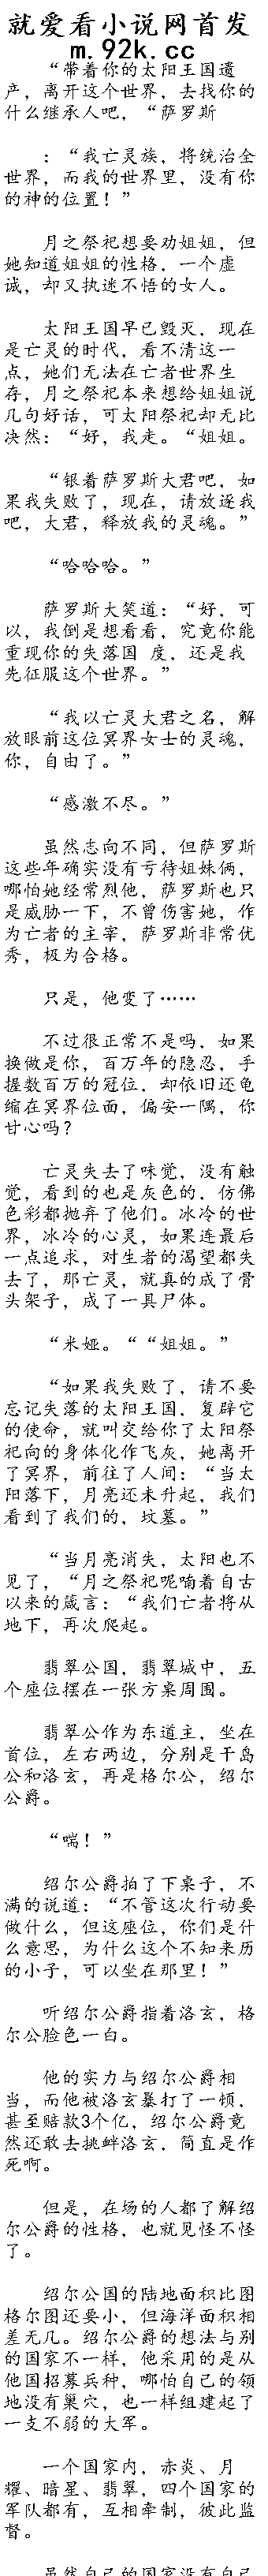 就爱看小说网首发
m.92k.cc
“带着你的太阳王国遗
产，离开这个世界，去找你的
什么继承人吧，“萨罗斯
：“我亡灵族，将统治全
世界，而我的世界里，没有你
的神的位置！”
月之祭祀想要劝姐姐，但
她知道姐姐的性格，一个虚
诚，却又执迷不悟的女人。
太阳王国早已毁灭，现在
是亡灵的时代，看不清这一
点，她们无法在亡者世界生
存，月之祭祀本来想给姐姐说
几句好话，可太阳祭祀却无比
决然：“好，我走。“姐姐。
“银着萨罗斯大君吧，如
果我失败了，现在，请放逐我
吧，大君，释放我的灵魂。”
“哈哈哈。”
萨罗斯大笑道：“好，可
以，我倒是想看看，究竟你能
重现你的失落国 度，还是我
先征服这个世界。”
“我以亡灵大君之名，解
放眼前这位冥界女士的灵魂，
你，自由了。”
“感激不尽。”
虽然志向不同，但萨罗斯
这些年确实没有亏待姐妹俩，
哪怕她经常烈他，萨罗斯也只
是威胁一下，不曾伤害她，作
为亡者的主宰，萨罗斯非常优
秀，极为合格。
只是，他变了……
不过很正常不是吗，如果
换做是你，百万年的隐忍，手
握数百万的冠位，却依旧还龟
缩在冥界位面，偏安一隅，你
甘心吗？
亡灵失去了味觉，没有触
觉，看到的也是灰色的，仿佛
色彩都抛弃了他们。冰冷的世
界，冰冷的心灵，如果连最后
一点追求，对生者的渴望都失
去了，那亡灵，就真的成了骨
头架子，成了一具尸体。
“米娅。““姐姐。”
“如果我失败了，请不要
忘记失落的太阳王国，复辟它
的使命，就叫交给你了太阳祭
祀向的身体化作飞灰，她离开
了冥界，前往了人间：“当太
阳落下，月亮还未升起，我们
看到了我们的，坟墓。”
“当月亮消失，太阳也不
见了，“月之祭祀呢喃着自古
以来的箴言：“我们亡者将从
地下，再次爬起。
翡翠公国，翡翠城中，五
个座位摆在一张方桌周围。
翡翠公作为东道主，坐在
首位，左右两边，分别是千岛
公和洛玄，再是格尔公，绍尔
公爵。
“喘！”
绍尔公爵拍了下桌子，不
满的说道：“不管这次行动要
做什么，但这座位，你们是什
么意思，为什么这个不知来历
的小子，可以坐在那里！”
听绍尔公爵指着洛玄，格
尔公脸色一白。
他的实力与绍尔公爵相
当，而他被洛玄暴打了一顿，
甚至赔款3个亿，绍尔公爵竟
然还敢去挑衅洛玄，简直是作
死啊。
但是，在场的人都了解绍
尔公爵的性格，也就见怪不怪
了。
绍尔公国的陆地面积比图
格尔图还要小，但海洋面积相
差无几。绍尔公爵的想法与别
的国家不一样，他采用的是从
他国招募兵种，哪怕自己的领
地没有巢穴，也一样组建起了
一支不弱的大军。
一个国家内，赤炎、月
耀、暗星、翡翠，四个国家的
军队都有，互相牵制，彼此监
督。
虽然自己的国家没有自己